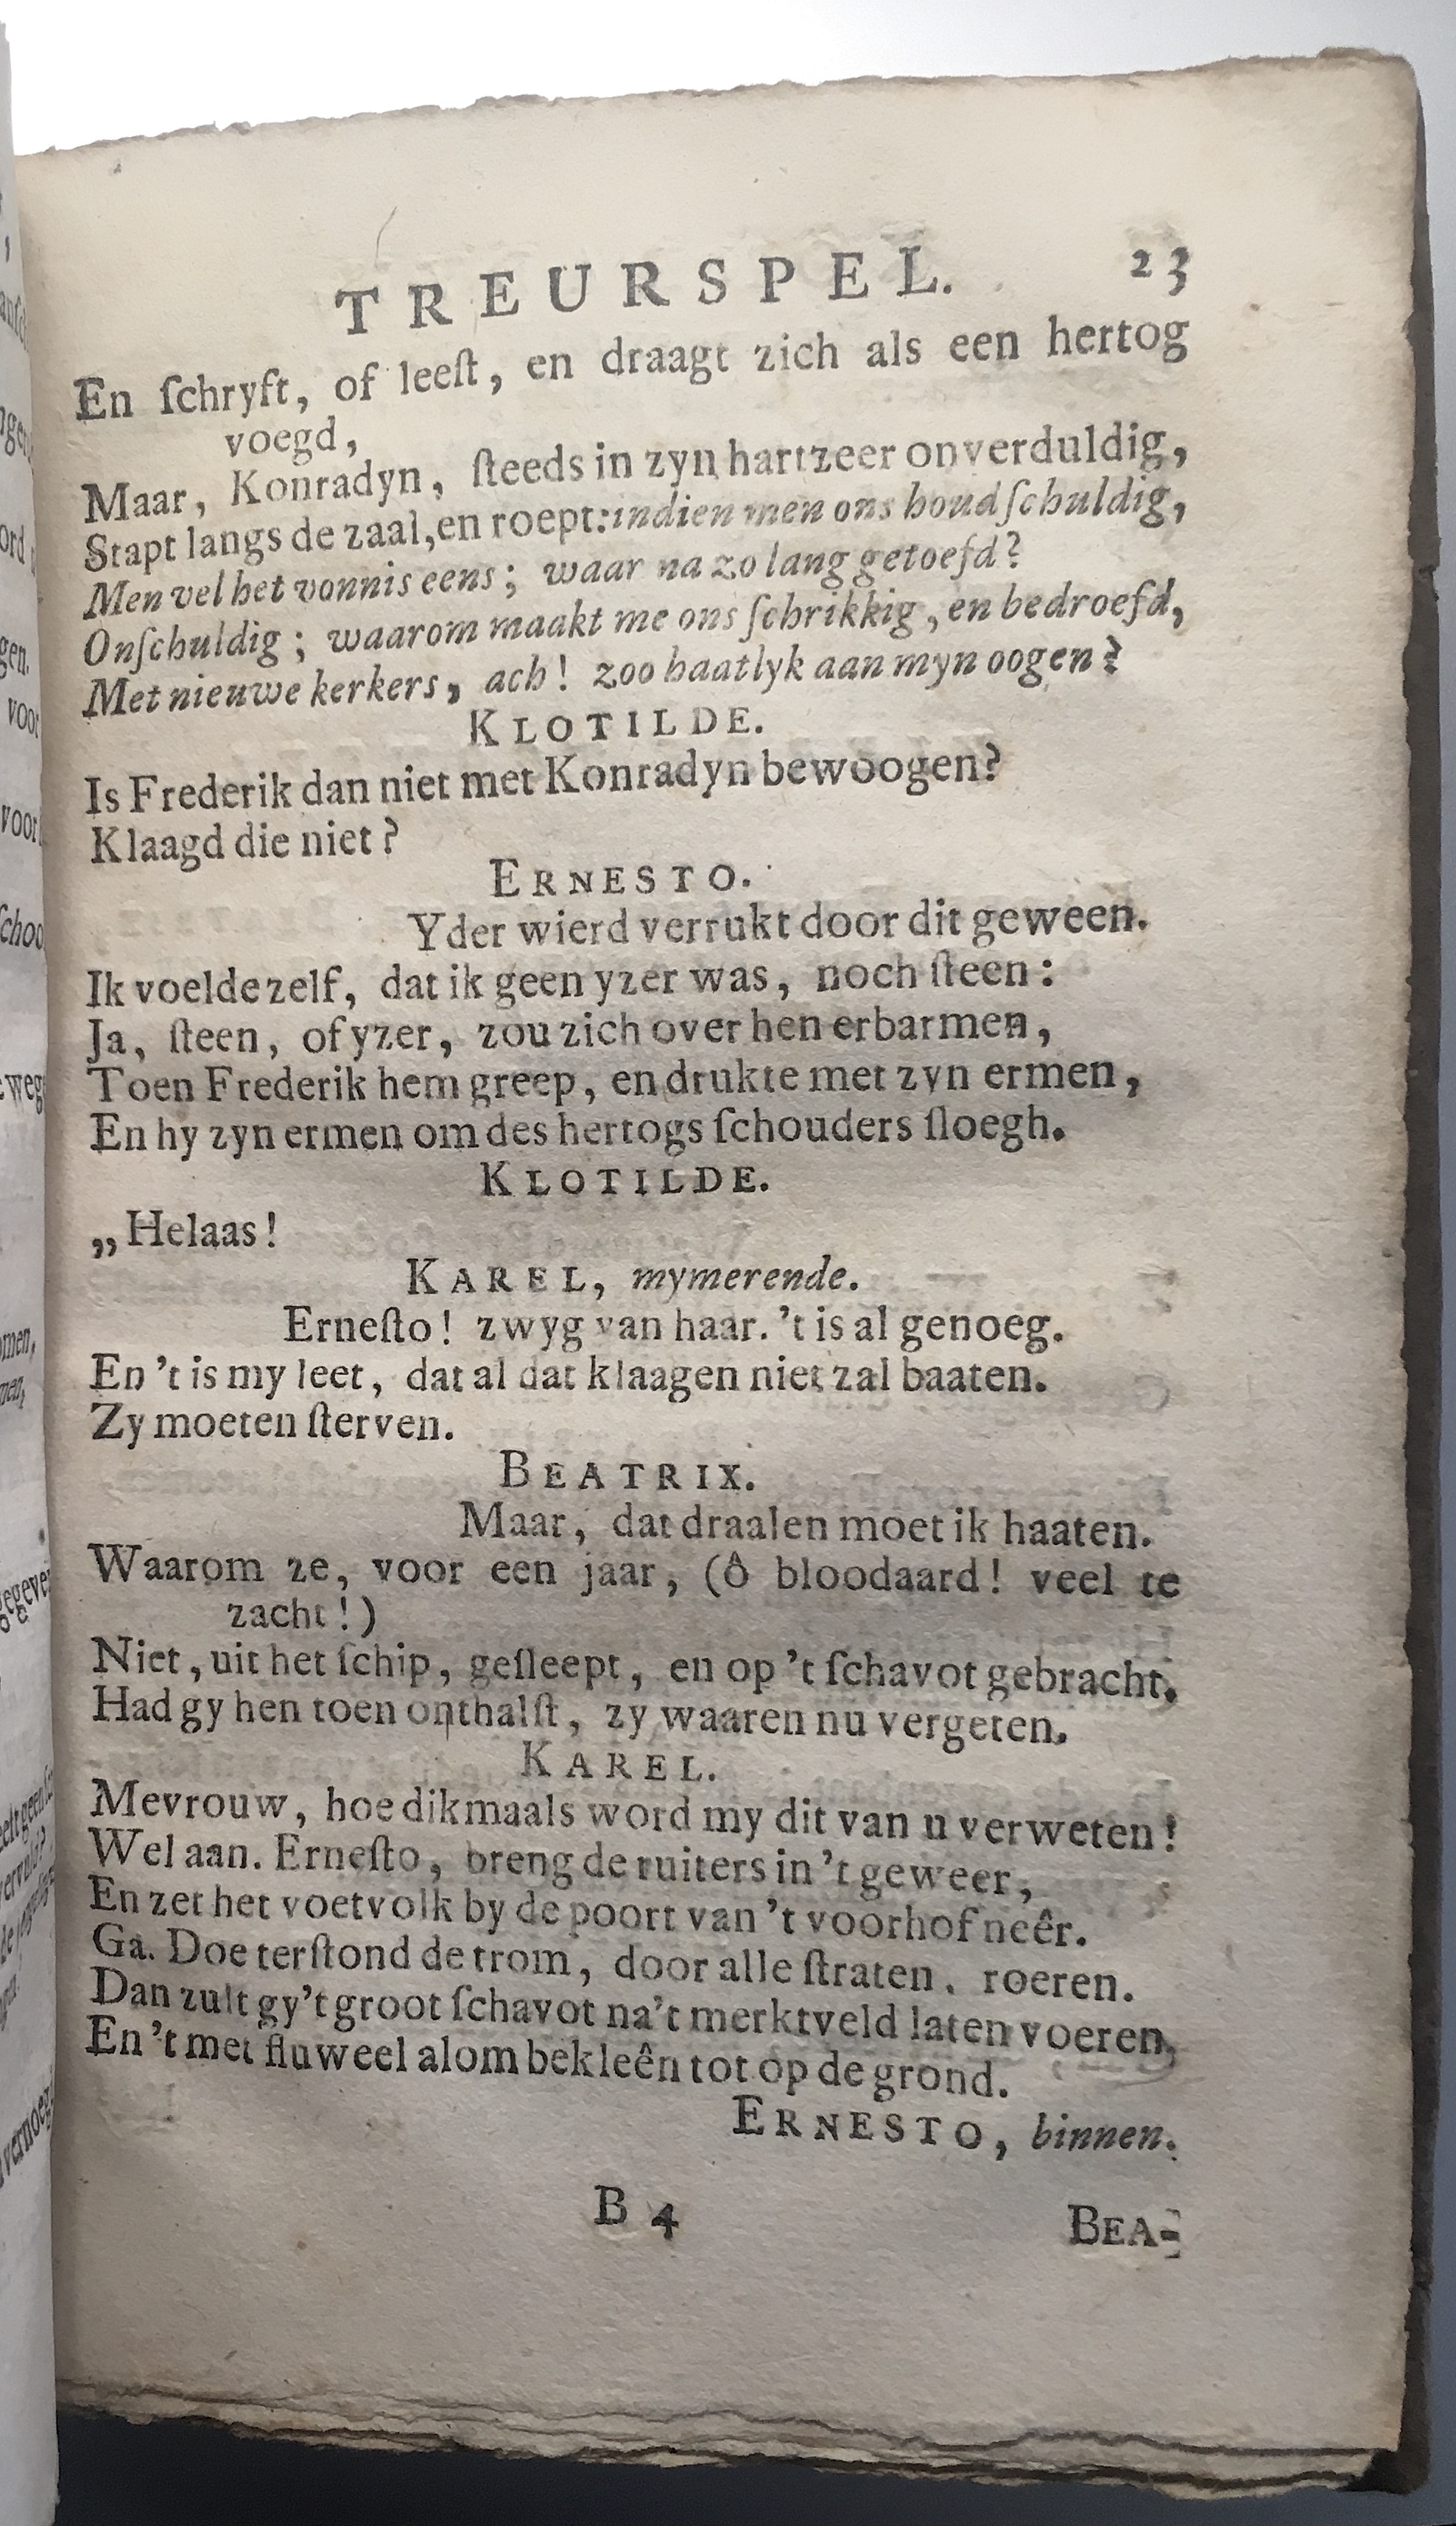 TREURSPEL. 23
En ſchryft, of leeſt, en draagt zich als een hertog
voegd,
Maar, Konradyn, ſteeds in zyn hartzeer onverduldig,
Stapt langs de zaal, en roept: indien men ons houd ſchuldig,
Men vel het vonnis eens; waar na zo lang getoefd?
Onſchuldig; waarom maakt me ons ſchrikkig, en bedroefd,
Met nieuwe kerkers, ach! zoo haatlyk aan myn oogen?
KLOTILDE.
Is Frederik dan niet met Konradyn bewoogen?
Klaagd die niet?
ERNESTO.
Yder wierd verrukt door dit geween.
Ik voelde zelf, dat ik geen yzer was, noch ſteen:
Ja, ſteen, of yzer, zou zich over hen erbarmen,
Toen Frederik hem greep, en drukte met zyn ermen,
En hy zyn ermen om des hertogs ſchouders ſloegh.
KLOTILDE.
„Helaas!
KAREL, mymerende.
Erneſto! zwyg van haar. 't is al genoeg.
En 't is my leet, dat al dat klaagen niet zal baaten.
Zy moeten ſterven.
BEATRIX.
Maar, dat draalen moet ik haaten.
Waarom ze, voor een jaar, (ô bloodaard! veel te
zacht!)
Niet, uit het ſchip, geſleept, en op 't ſchavot gebracht,
Had gy hen toen onthalſt, zy waaren nu vergeten.
KAREL.
Mevrouw, hoe dikmaals word my dit van u verweten!
Wel aan. Erneſto, breng de ruiters in 't geweer,
En zet het voetvolk by de poort van 't voorhof neêr.
Ga. Doe terſtond de trom, door alle ſtraten, roeren.
Dan zult gy 't groot ſchavot na 't merktveld laten voeren,
En 't met fluweel alom bekleên tot op de grond.
ERNESTO, binnen.
B 4 BEA-